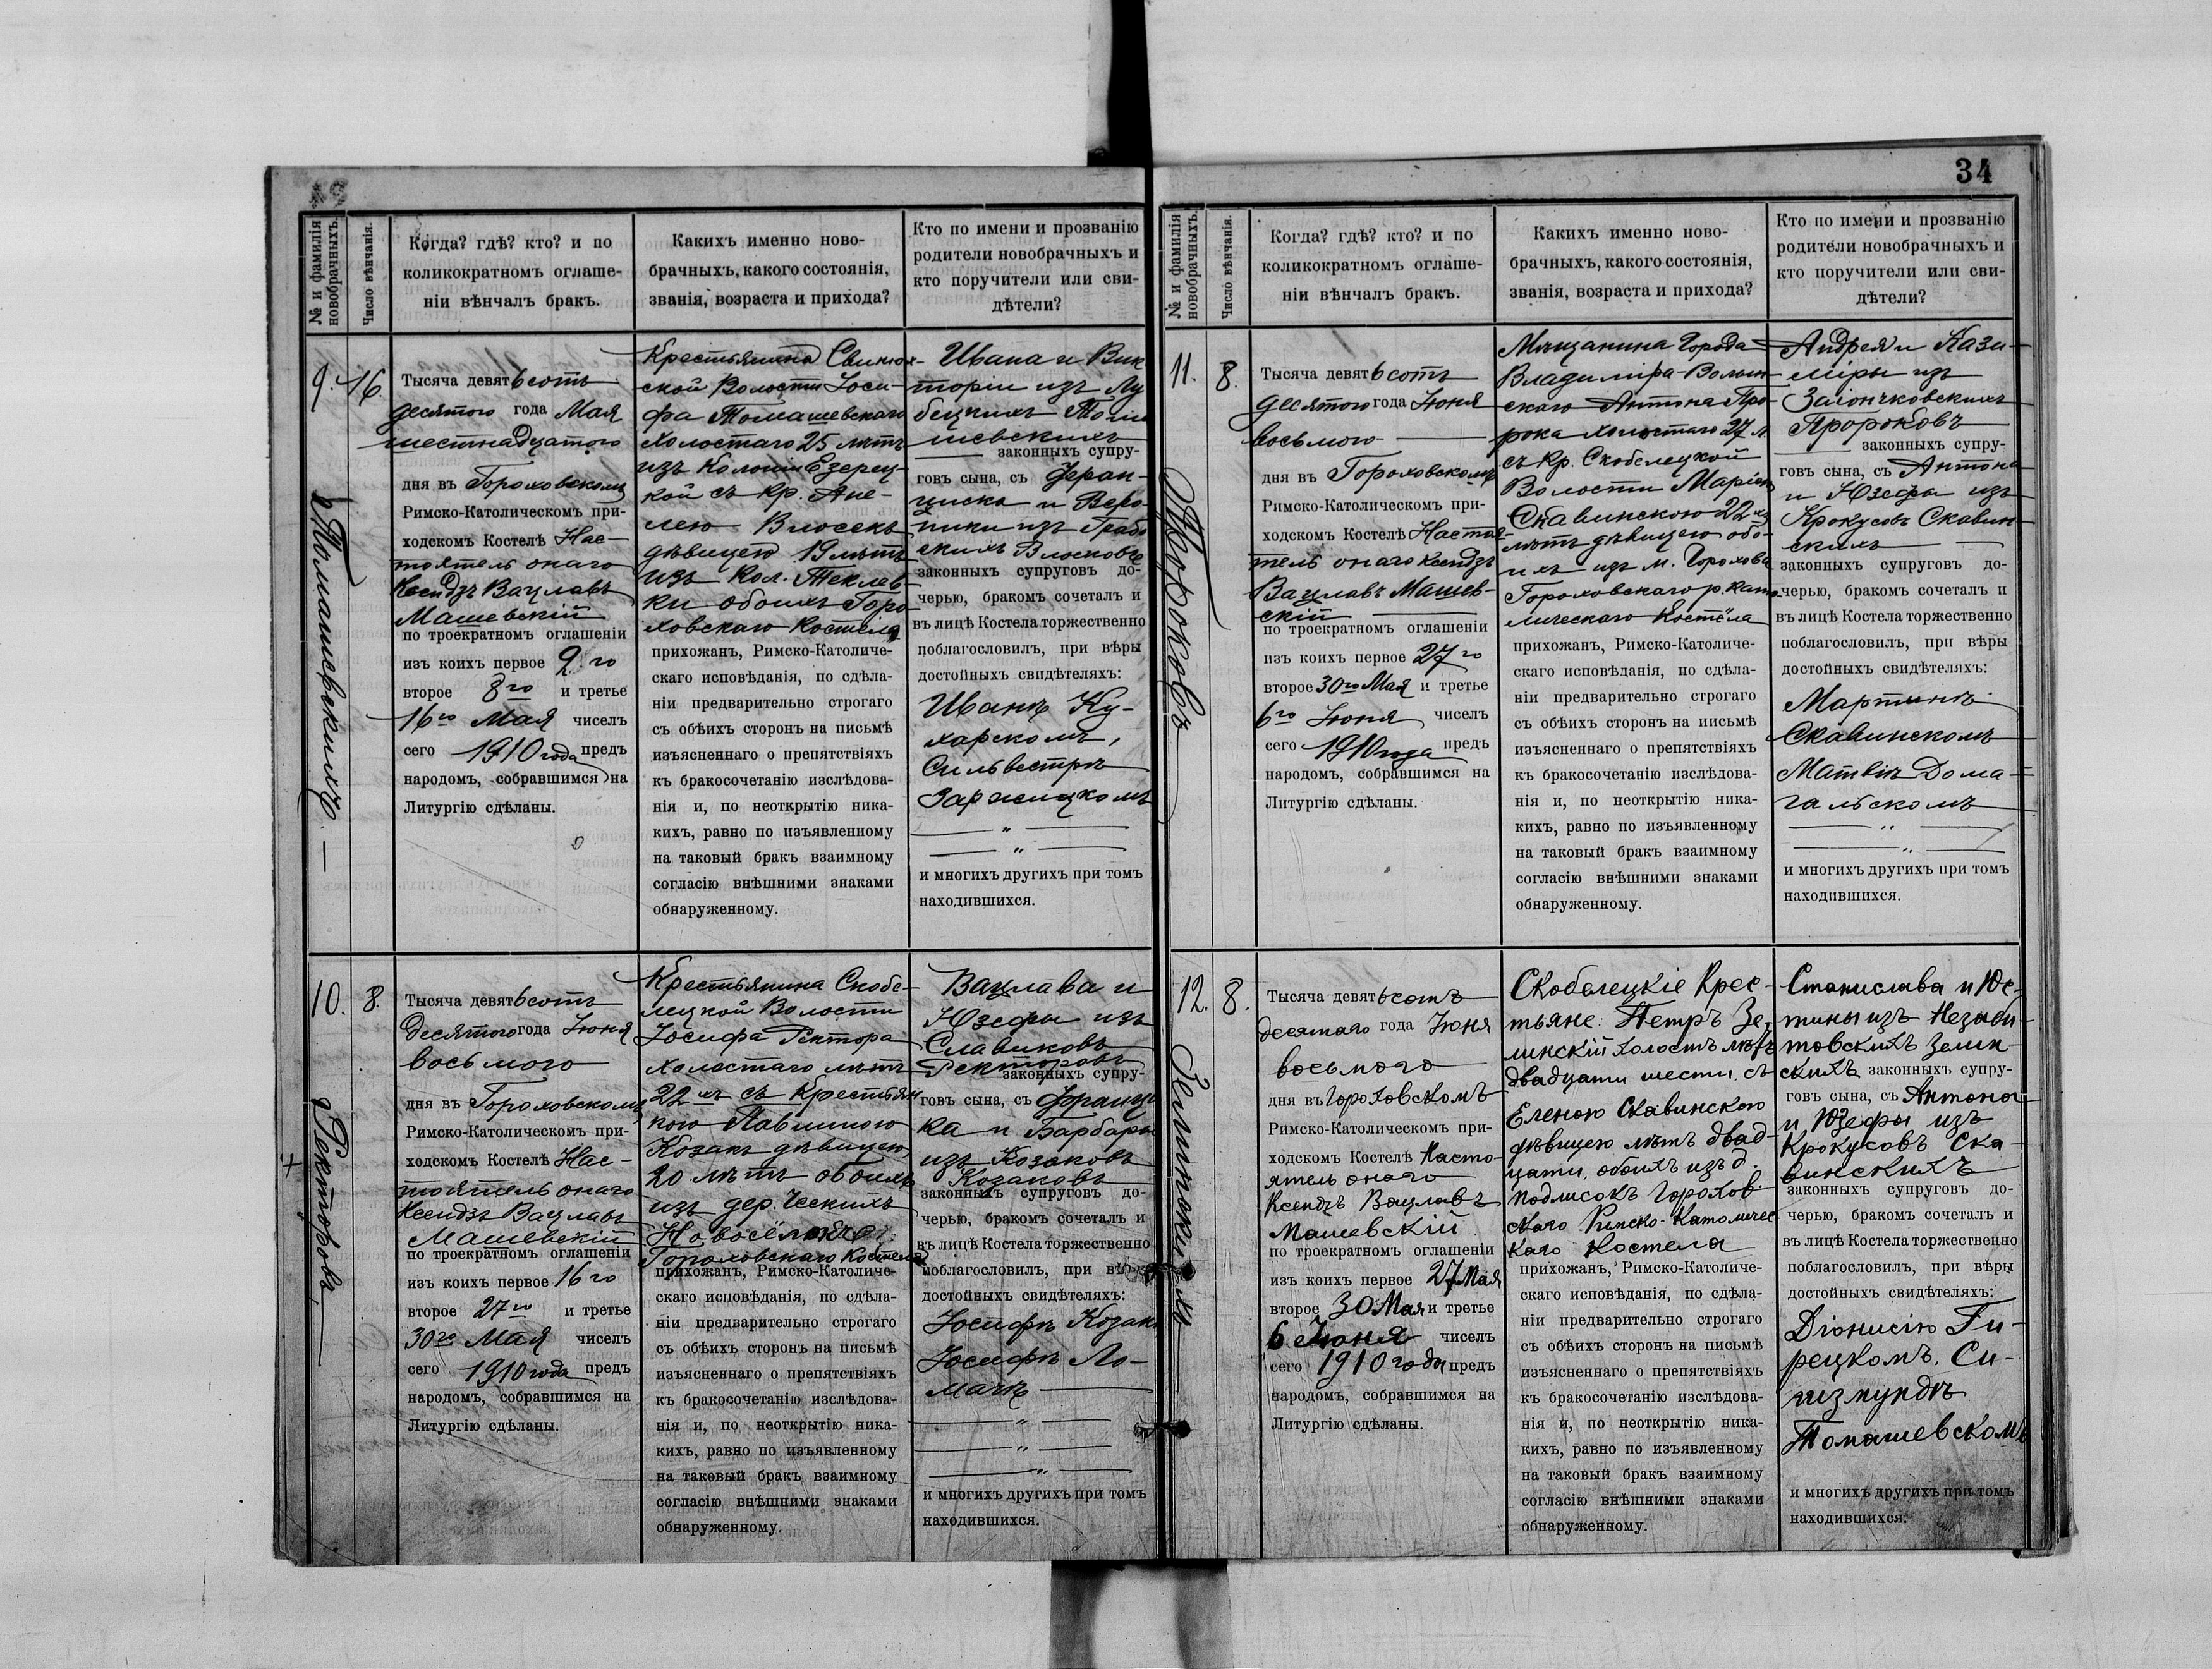 34
№ и фамилія новобрачныхъ.
Число вѣнчанія.
Когда? гдѣ? кто? и по
коликократномъ оглаше-
ніи вѣнчалъ бракъ.
Какихъ именно ново-
брачныхъ, какого состоянія,
званія, возраста и прихода?
Кто по имени и прозванію
родители новобрачныхъ и
кто поручители или сви-
дѣтели?
9.
Томашевскихъ. —
16.
Тысяча девятьсотъ
десятого года Мая
шестнадцатого
дня въ Гороховскомъ
Римско-Католическомъ при-
ходскомъ Костелѣ Нас-
тоятель онаго
Ксендзъ Вацлавъ
Машевскій
по троекратномъ оглашеніи
изъ коихъ первое 2го
второе 8го и третье
16го Мая чиселъ
сего 1910 года предъ
народомъ, собравшимся на
Литургію сдѣланы.
Крестьянина Свинюх-
ской Волости Іоси-
фа Томашевскаго
холостаго 25 лѣтъ
изъ Колоніи Езерец-
кой съ кр. Ане-
лею Влосекъ
дѣвицею 19 лѣтъ
изъ Кол. Теклев-
ки обоихъ Горо-
ховскаго Костела
прихожанъ, Римско-Католиче-
скаго исповѣданія, по сдѣла-
ніи предварительно строгаго
съ обѣихъ сторонъ на письмѣ
изъясненнаго о препятствіяхъ
къ бракосочетанію изслѣдова-
нія и, по неоткрытію ника-
кихъ, равно по изъявленному
на таковый бракъ взаимному
согласію внѣшними знаками
обнаруженному.
Ивана и Вик
торіи изъ Лу
бецкихъ Тома
шевскихъ
законныхъ супру-
говъ сына, съ Фран-
циска и Веро-
ники изъ Грабо
скихъ Влосковъ
законныхъ супруговъ до-
черью, бракомъ сочеталъ и
въ лицѣ Костела торжественно
поблагословилъ, при вѣры
достойныхъ свидѣтеляхъ:
Иванѣ Ку-
харскомъ,
Сильвестрѣ
Зарѣцкомъ
— „ —
— „ —
и многихъ другихъ при томъ
находившихся.
10.
Ректоровъ.
8.
Тысяча девятьсотъ
десятого года Іюня
восьмого
дня въ Гороховскомъ
Римско-Католическомъ при-
ходскомъ Костелѣ Нас-
тоятель онаго
Ксендзъ Вацлавъ
Машевскій
по троекратномъ оглашеніи
изъ коихъ первое 16го
второе 27го и третье
30го Мая чиселъ
сего 1910 года предъ
народомъ, собравшимся на
Литургію сдѣланы.
Крестьянина Скобе-
лецкой Волости
Іосифа Ректора
холостаго лѣтъ
22хъ съ Крестьян
кою Павлиною
Козакъ дѣвицею
20 лѣтъ обоихъ
изъ дер. Чешскихъ
Новосёлокъ
Гороховскаго Костела
прихожанъ, Римско-Католиче-
скаго исповѣданія, по сдѣла-
ніи предварительно строгаго
съ обѣихъ сторонъ на письмѣ
изъясненнаго о препятствіяхъ
къ бракосочетанію изслѣдова-
нія и, по неоткрытію ника-
кихъ, равно по изъявленному
на таковый бракъ взаимному
согласію внѣшними знаками
обнаруженному.
Вацлава и
Юзефы изъ
Славиковъ
Ректоровъ
законныхъ супру-
говъ сына, съ Франци
ка и Барбары
изъ Козаковъ
Козаковъ
законныхъ супруговъ до-
черью, бракомъ сочеталъ и
въ лицѣ Костела торжественно
поблагословилъ, при вѣры
достойныхъ свидѣтеляхъ:
Іосифѣ Козакъ
Іосифѣ Ло-
мачѣ —
— „ —
— „ —
— „ —
и многихъ другихъ при томъ
находившихся.
№ и фамилія новобрачныхъ.
Число вѣнчанія.
Когда? гдѣ? кто? и по
коликократномъ оглаше-
ніи вѣнчалъ бракъ.
Какихъ именно ново-
брачныхъ, какого состоянія,
званія, возраста и прихода?
Кто по имени и прозванію
родители новобрачныхъ и
кто поручители или сви-
дѣтели?
11.
Пророковъ
8.
Тысяча девятьсотъ
десятого года Іюня
восьмого
дня въ Гороховскомъ
Римско-Католическомъ при-
ходскомъ Костелѣ Настоя-
тель онаго Ксендзъ
Вацлавъ Машев-
скій
по троекратномъ оглашеніи
изъ коихъ первое 27го
второе 30го Мая и третье
6го Іюня чиселъ
сего 1910 года предъ
народомъ, собравшимся на
Литургію сдѣланы.
Мѣщанина Города
Владиміра-Волын-
скаго Антона Про-
рока холостаго 27 л.
съ кр. Скобелецкой
Волости Маріею
Скавинскою 22хъ
лѣтъ дѣвицею обо-
ихъ изъ м. Горохова
Гороховскаго р. като-
лическаго Костёла
прихожанъ, Римско-Католиче-
скаго исповѣданія, по сдѣла-
ніи предварительно строгаго
съ обѣихъ сторонъ на письмѣ
изъясненнаго о препятствіяхъ
къ бракосочетанію изслѣдова-
нія и, по неоткрытію ника-
кихъ, равно по изъявленному
на таковый бракъ взаимному
согласію внѣшними знаками
обнаруженному.
Андрея и Кази-
міры изъ
Заіончковскихъ
Пророковъ
законныхъ супру-
говъ сына, съ Антона
и Юзефы изъ
Крокусовъ Скавин-
скихъ
законныхъ супруговъ до-
черью, бракомъ сочеталъ и
въ лицѣ Костела торжественно
поблагословилъ, при вѣры
достойныхъ свидѣтеляхъ:
Мартинѣ
Скавинскомъ
Матвіѣ Дома-
гальскомъ
— „ —
— „ —
и многихъ другихъ при томъ
находившихся.
12.
Зелинскихъ
8.
Тысяча девятьсотъ
десятаго года Іюня
восьмого
дня въ Гороховскомъ
Римско-Католическомъ при-
ходскомъ Костелѣ Насто-
ятель онаго
Ксендзъ Вацлавъ
Машевскій
по троекратномъ оглашеніи
изъ коихъ первое 27 Мая
второе 30 Мая и третье
6 Іюня чиселъ
сего 1910 года предъ
народомъ, собравшимся на
Литургію сдѣланы.
Скобелецкіе Крес-
тьяне: Петръ Зе-
линскій холостъ лѣтъ
двадцати шести, съ
Еленою Скавинскою
дѣвицею лѣтъ двад-
цати, обоихъ изъ д.
Подлисокъ Горохов-
скаго Римско-Католичес-
каго Костела
прихожанъ, Римско-Католиче-
скаго исповѣданія, по сдѣла-
ніи предварительно строгаго
съ обѣихъ сторонъ на письмѣ
изъясненнаго о препятствіяхъ
къ бракосочетанію изслѣдова-
нія и, по неоткрытію ника-
кихъ, равно по изъявленному
на таковый бракъ взаимному
согласію внѣшними знаками
обнаруженному.
Станислава и Юс-
тины изъ Незаби-
товскихъ Зелин-
скихъ законныхъ супру-
говъ сына, съ Антона
и Юзефы изъ
Крокусовъ Ска-
винскихъ
законныхъ супруговъ до-
черью, бракомъ сочеталъ и
въ лицѣ Костела торжественно
поблагословилъ, при вѣры
достойныхъ свидѣтеляхъ:
Діонисію Ги-
рецкомъ, Си-
гизмундѣ
Томашевскомъ
и многихъ другихъ при томъ
находившихся.